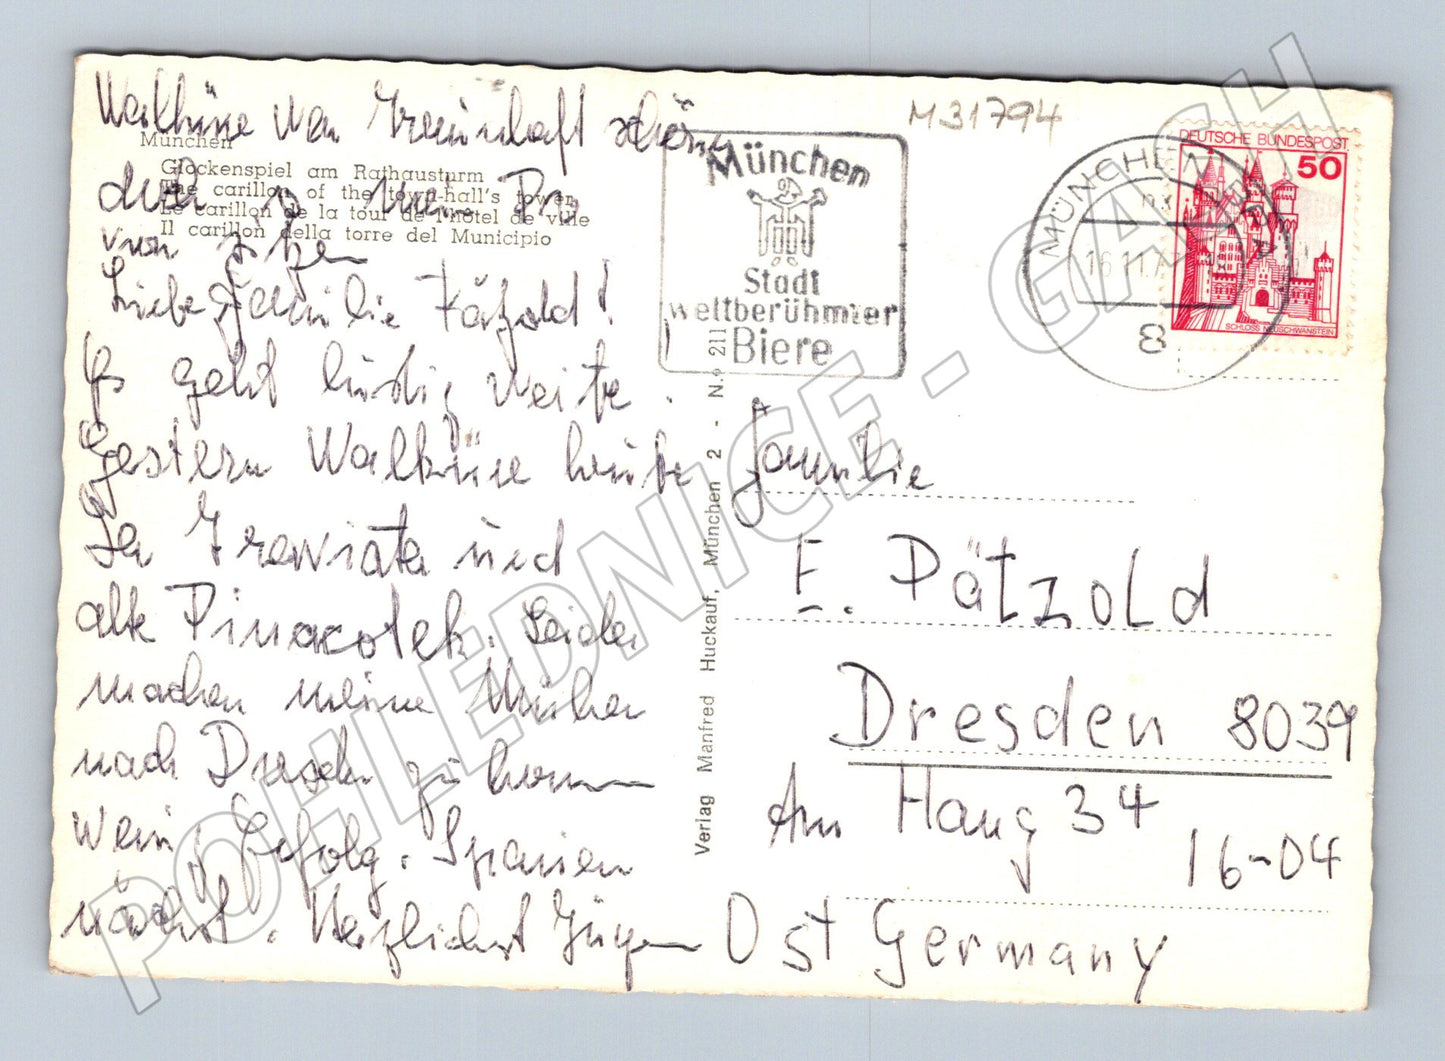 Walküre war traumhaft schön
München
Glockenspiel am Rathausturm
The carillon of the town-hall's tower
Le carillon de la tour de l'hôtel de ville
Il carillon della torre del Municipio
von
Liebe Familie Pätzold!
Es geht lustig weiter.
Gestern Walküre heute
La Traviata und
alte Pinacotek. Leider
machen meine Mühen
nach Dresden zu kommen
wenig Erfolg. Spanien
nächst. Herzlichst Jürgen
M31794
München
Stadt
weltberühmter
Biere
MÜNCHEN
16.11.7
8
DEUTSCHE BUNDESPOST
50
SCHLOSS NEUSCHWANSTEIN
Verlag Manfred Huckauf, München 2 - N.º 211
Familie
E. Pätzold
Dresden 8039
Am Hang 34
16-04
Ost Germany
POHLEDNICE - GAASH